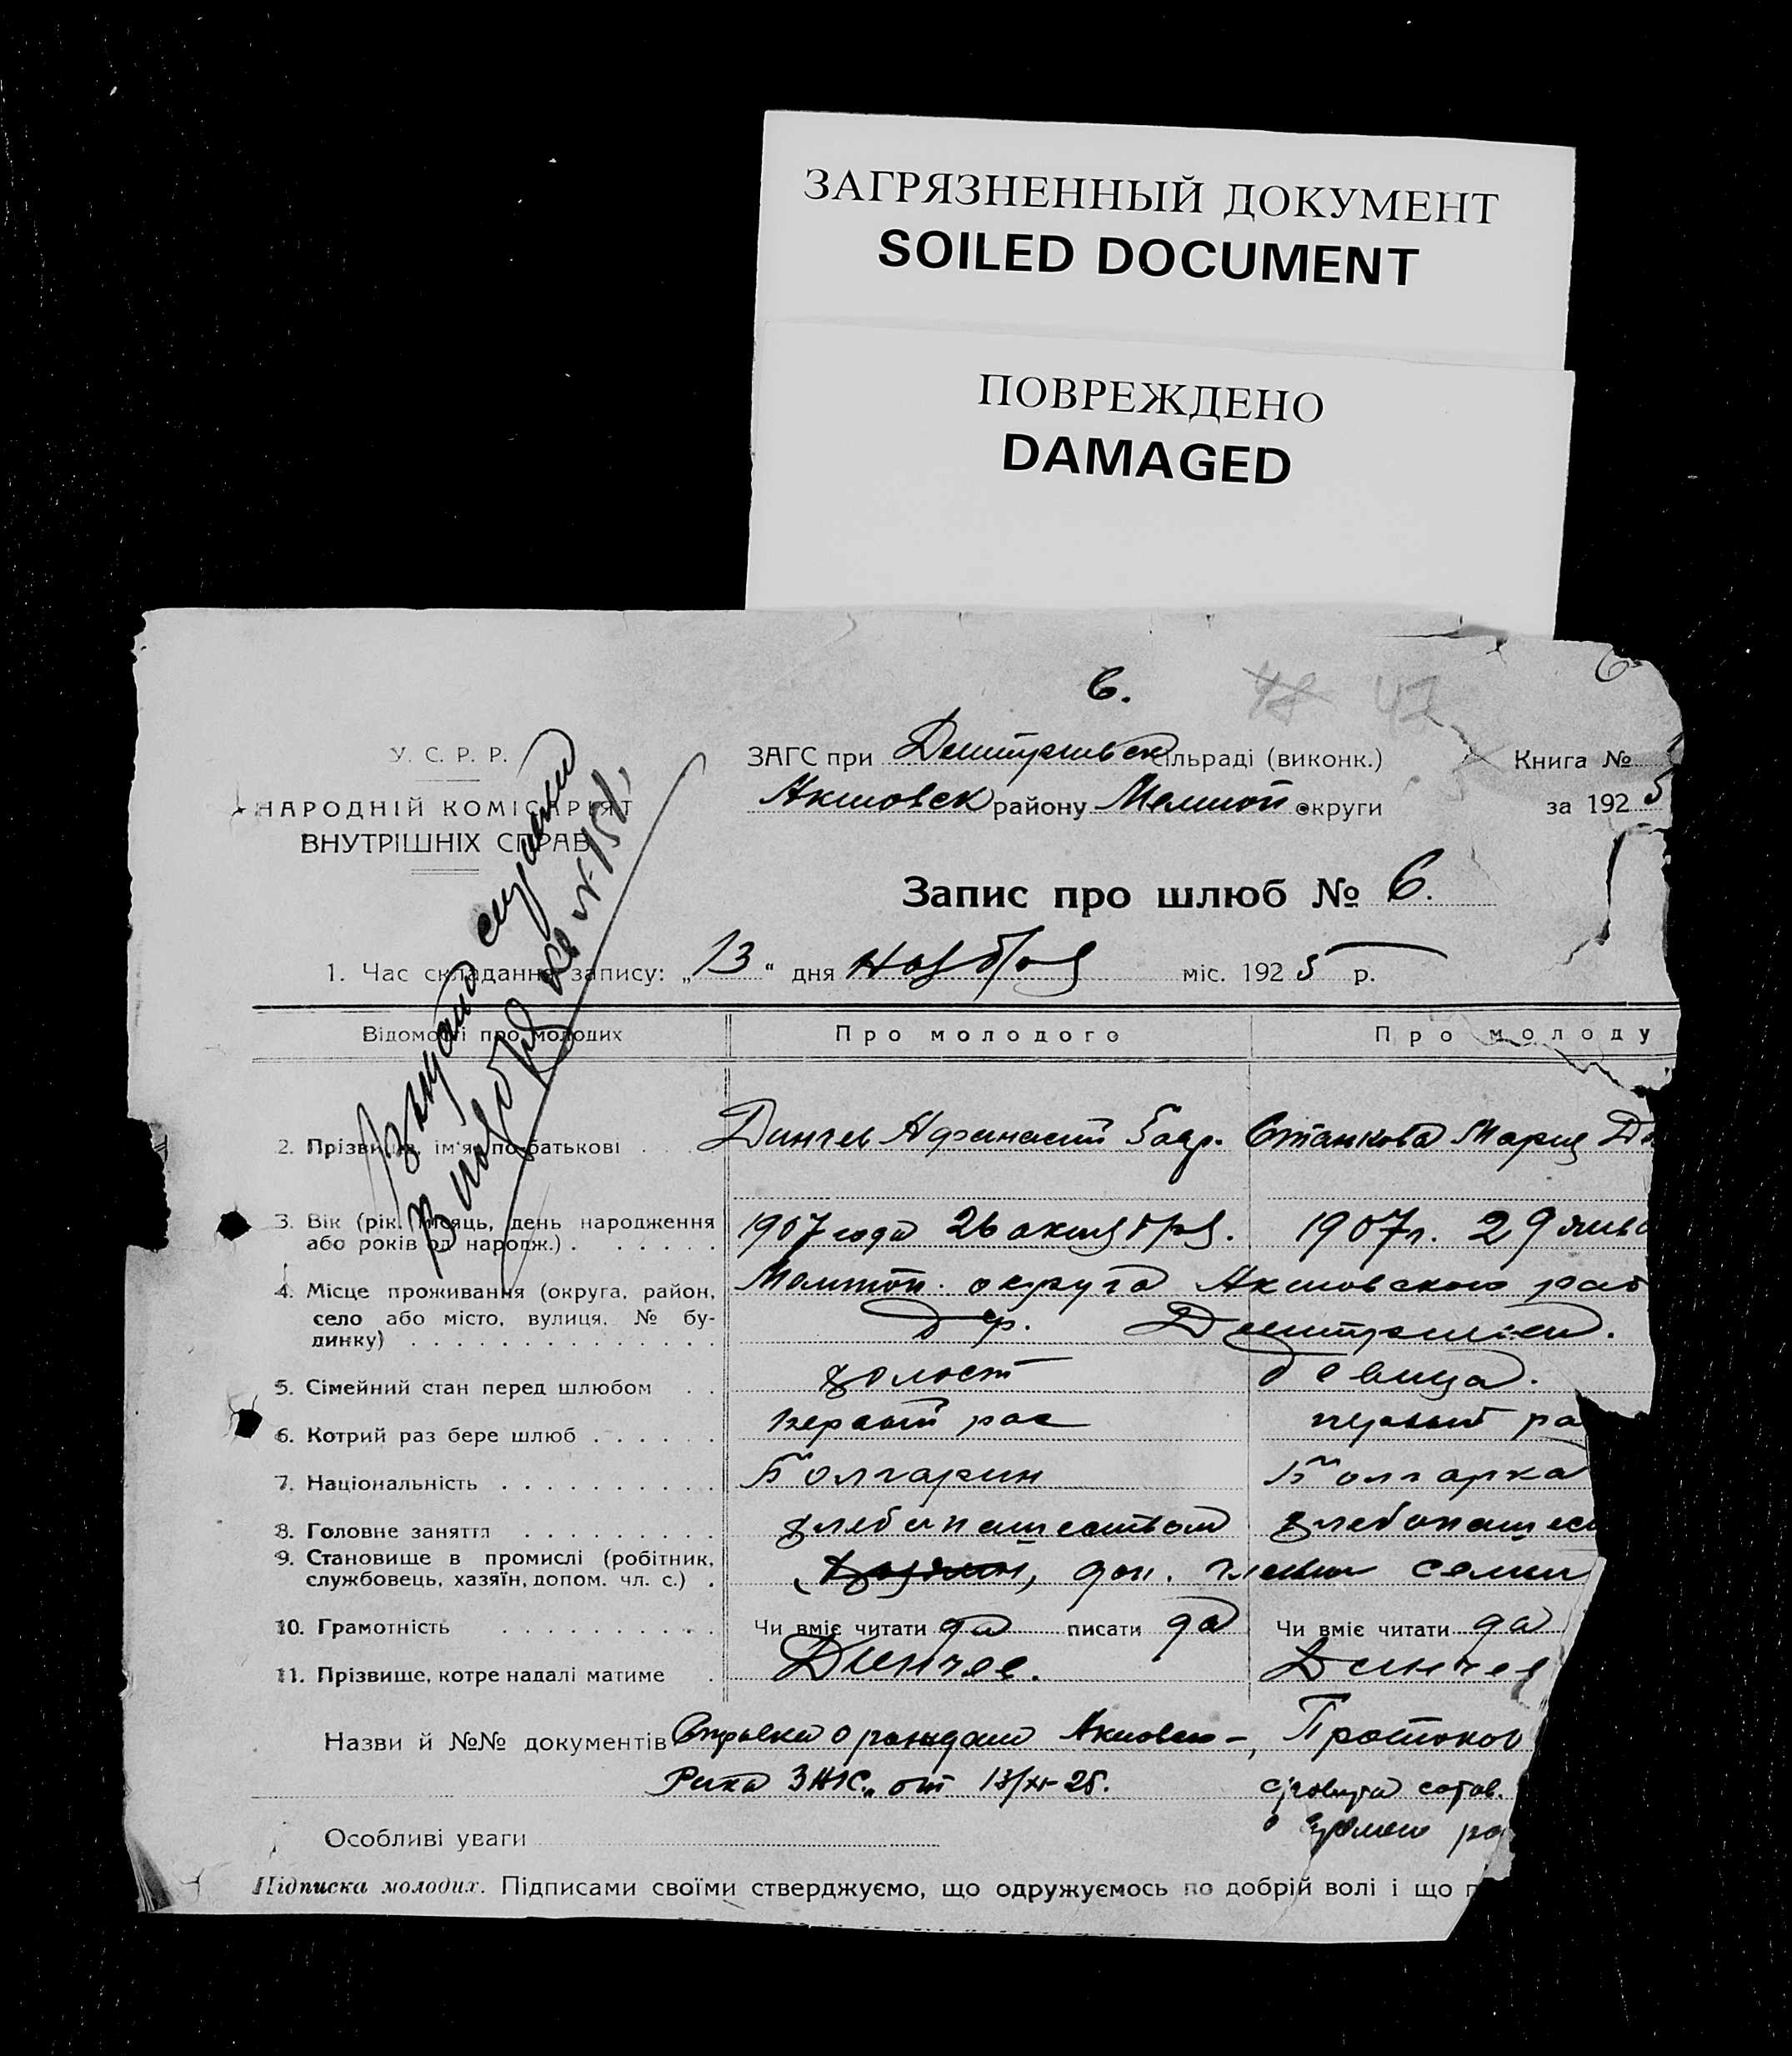 ЗАГРЯЗНЕННЫЙ ДОКУМЕНТ
SOILED DOCUMENT
ПОВРЕЖДЕНО
DAMAGED
6. 48 47 6
У. С. Р. Р.
НАРОДНІЙ КОМІСАРІЯТ
ВНУТРІШНІХ СПРАВ
ЗАГС при Дмитриевск сільраді (виконк.)
Акимовск району Мелитоп округи
Книга №
за 1925
Запис про шлюб № 6.
1. Час складання запису: „13“ дня ноября міс. 1925 р.
Відомості про молодих Про молодого Про молоду
2. Прізвище, ім'я, по батькові . . . Динчев Афанасий Гавр. Станкова Мария
3. Вік (рік, місяць, день народження
або років од народж.) . . . . . . 1907 года 26 октября. 1907 г. 29
4. Місце проживання (округа, район,
село або місто, вулиця, № бу-
динку) . . . . . . . . . . . . . .
Мелитоп. округа Акимовского
д^ер. Дмитриевка.
5. Сімейний стан перед шлюбом . . холост девица.
6. Котрий раз бере шлюб . . . . . . первый раз первый ра
7. Національність . . . . . . . . . . Болгарин Болгарка
8. Головне заняття . . . . . . . . . хлебопашеством хлебопашес
9. Становище в промислі (робітник,
службовець, хазяїн, допом. чл. с.) . доп. члены семьи
10. Грамотність . . . . . . . . . . Чи вміє читати да писати да Чи вміє читати да
11. Прізвище, котре надалі матиме . Динчев. Динчев
Назви й №№ документів Справка о Акимовск-, Протокол
Рика ЗАГС„ от 13/XI-25.
Особливі уваги
Підписка молодих. Підписами своїми стверджуємо, що одружуємось по добрій волі і що п